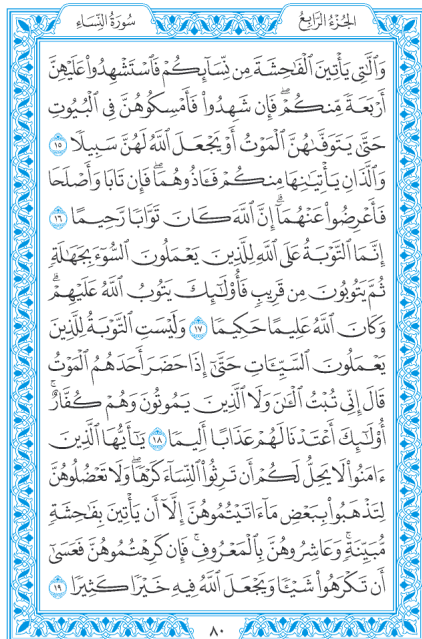 الجُزءُ الرَّابِعُ
سُورَةُ النِّسَاءِ
وَٱلَّٰتِي يَأۡتِينَ ٱلۡفَٰحِشَةَ مِن نِّسَآئِكُمۡ فَٱسۡتَشۡهِدُواْ عَلَيۡهِنَّ
أَرۡبَعَةٗ مِّنكُمۡۖ فَإِن شَهِدُواْ فَأَمۡسِكُوهُنَّ فِي ٱلۡبُيُوتِ
حَتَّىٰ يَتَوَفَّىٰهُنَّ ٱلۡمَوۡتُ أَوۡ يَجۡعَلَ ٱللَّهُ لَهُنَّ سَبِيلٗا ١٥
وَٱلَّذَانِ يَأۡتِيَٰنِهَا مِنكُمۡ فَـَٔاذُوهُمَاۖ فَإِن تَابَا وَأَصۡلَحَا
فَأَعۡرِضُواْ عَنۡهُمَآۗ إِنَّ ٱللَّهَ كَانَ تَوَّابٗا رَّحِيمًا ١٦
إِنَّمَا ٱلتَّوۡبَةُ عَلَى ٱللَّهِ لِلَّذِينَ يَعۡمَلُونَ ٱلسُّوٓءَ بِجَهَٰلَةٖ
ثُمَّ يَتُوبُونَ مِن قَرِيبٖ فَأُوْلَٰٓئِكَ يَتُوبُ ٱللَّهُ عَلَيۡهِمۡۗ
وَكَانَ ٱللَّهُ عَلِيمًا حَكِيمٗا ١٧ وَلَيۡسَتِ ٱلتَّوۡبَةُ لِلَّذِينَ
يَعۡمَلُونَ ٱلسَّيِّـَٔاتِ حَتَّىٰٓ إِذَا حَضَرَ أَحَدَهُمُ ٱلۡمَوۡتُ
قَالَ إِنِّي تُبۡتُ ٱلۡـَٰٔنَ وَلَا ٱلَّذِينَ يَمُوتُونَ وَهُمۡ كُفَّارٌۚ
أُوْلَٰٓئِكَ أَعۡتَدۡنَا لَهُمۡ عَذَابًا أَلِيمٗا ١٨ يَٰٓأَيُّهَا ٱلَّذِينَ
ءَامَنُواْ لَا يَحِلُّ لَكُمۡ أَن تَرِثُواْ ٱلنِّسَآءَ كَرۡهٗاۖ وَلَا تَعۡضُلُوهُنَّ
لِتَذۡهَبُواْ بِبَعۡضِ مَآ ءَاتَيۡتُمُوهُنَّ إِلَّآ أَن يَأۡتِينَ بِفَٰحِشَةٖ
مُّبَيِّنَةٖۚ وَعَاشِرُوهُنَّ بِٱلۡمَعۡرُوفِۚ فَإِن كَرِهۡتُمُوهُنَّ فَعَسَىٰٓ
أَن تَكۡرَهُواْ شَيۡـٔٗا وَيَجۡعَلَ ٱللَّهُ فِيهِ خَيۡرٗا كَثِيرٗا ١٩
٨٠